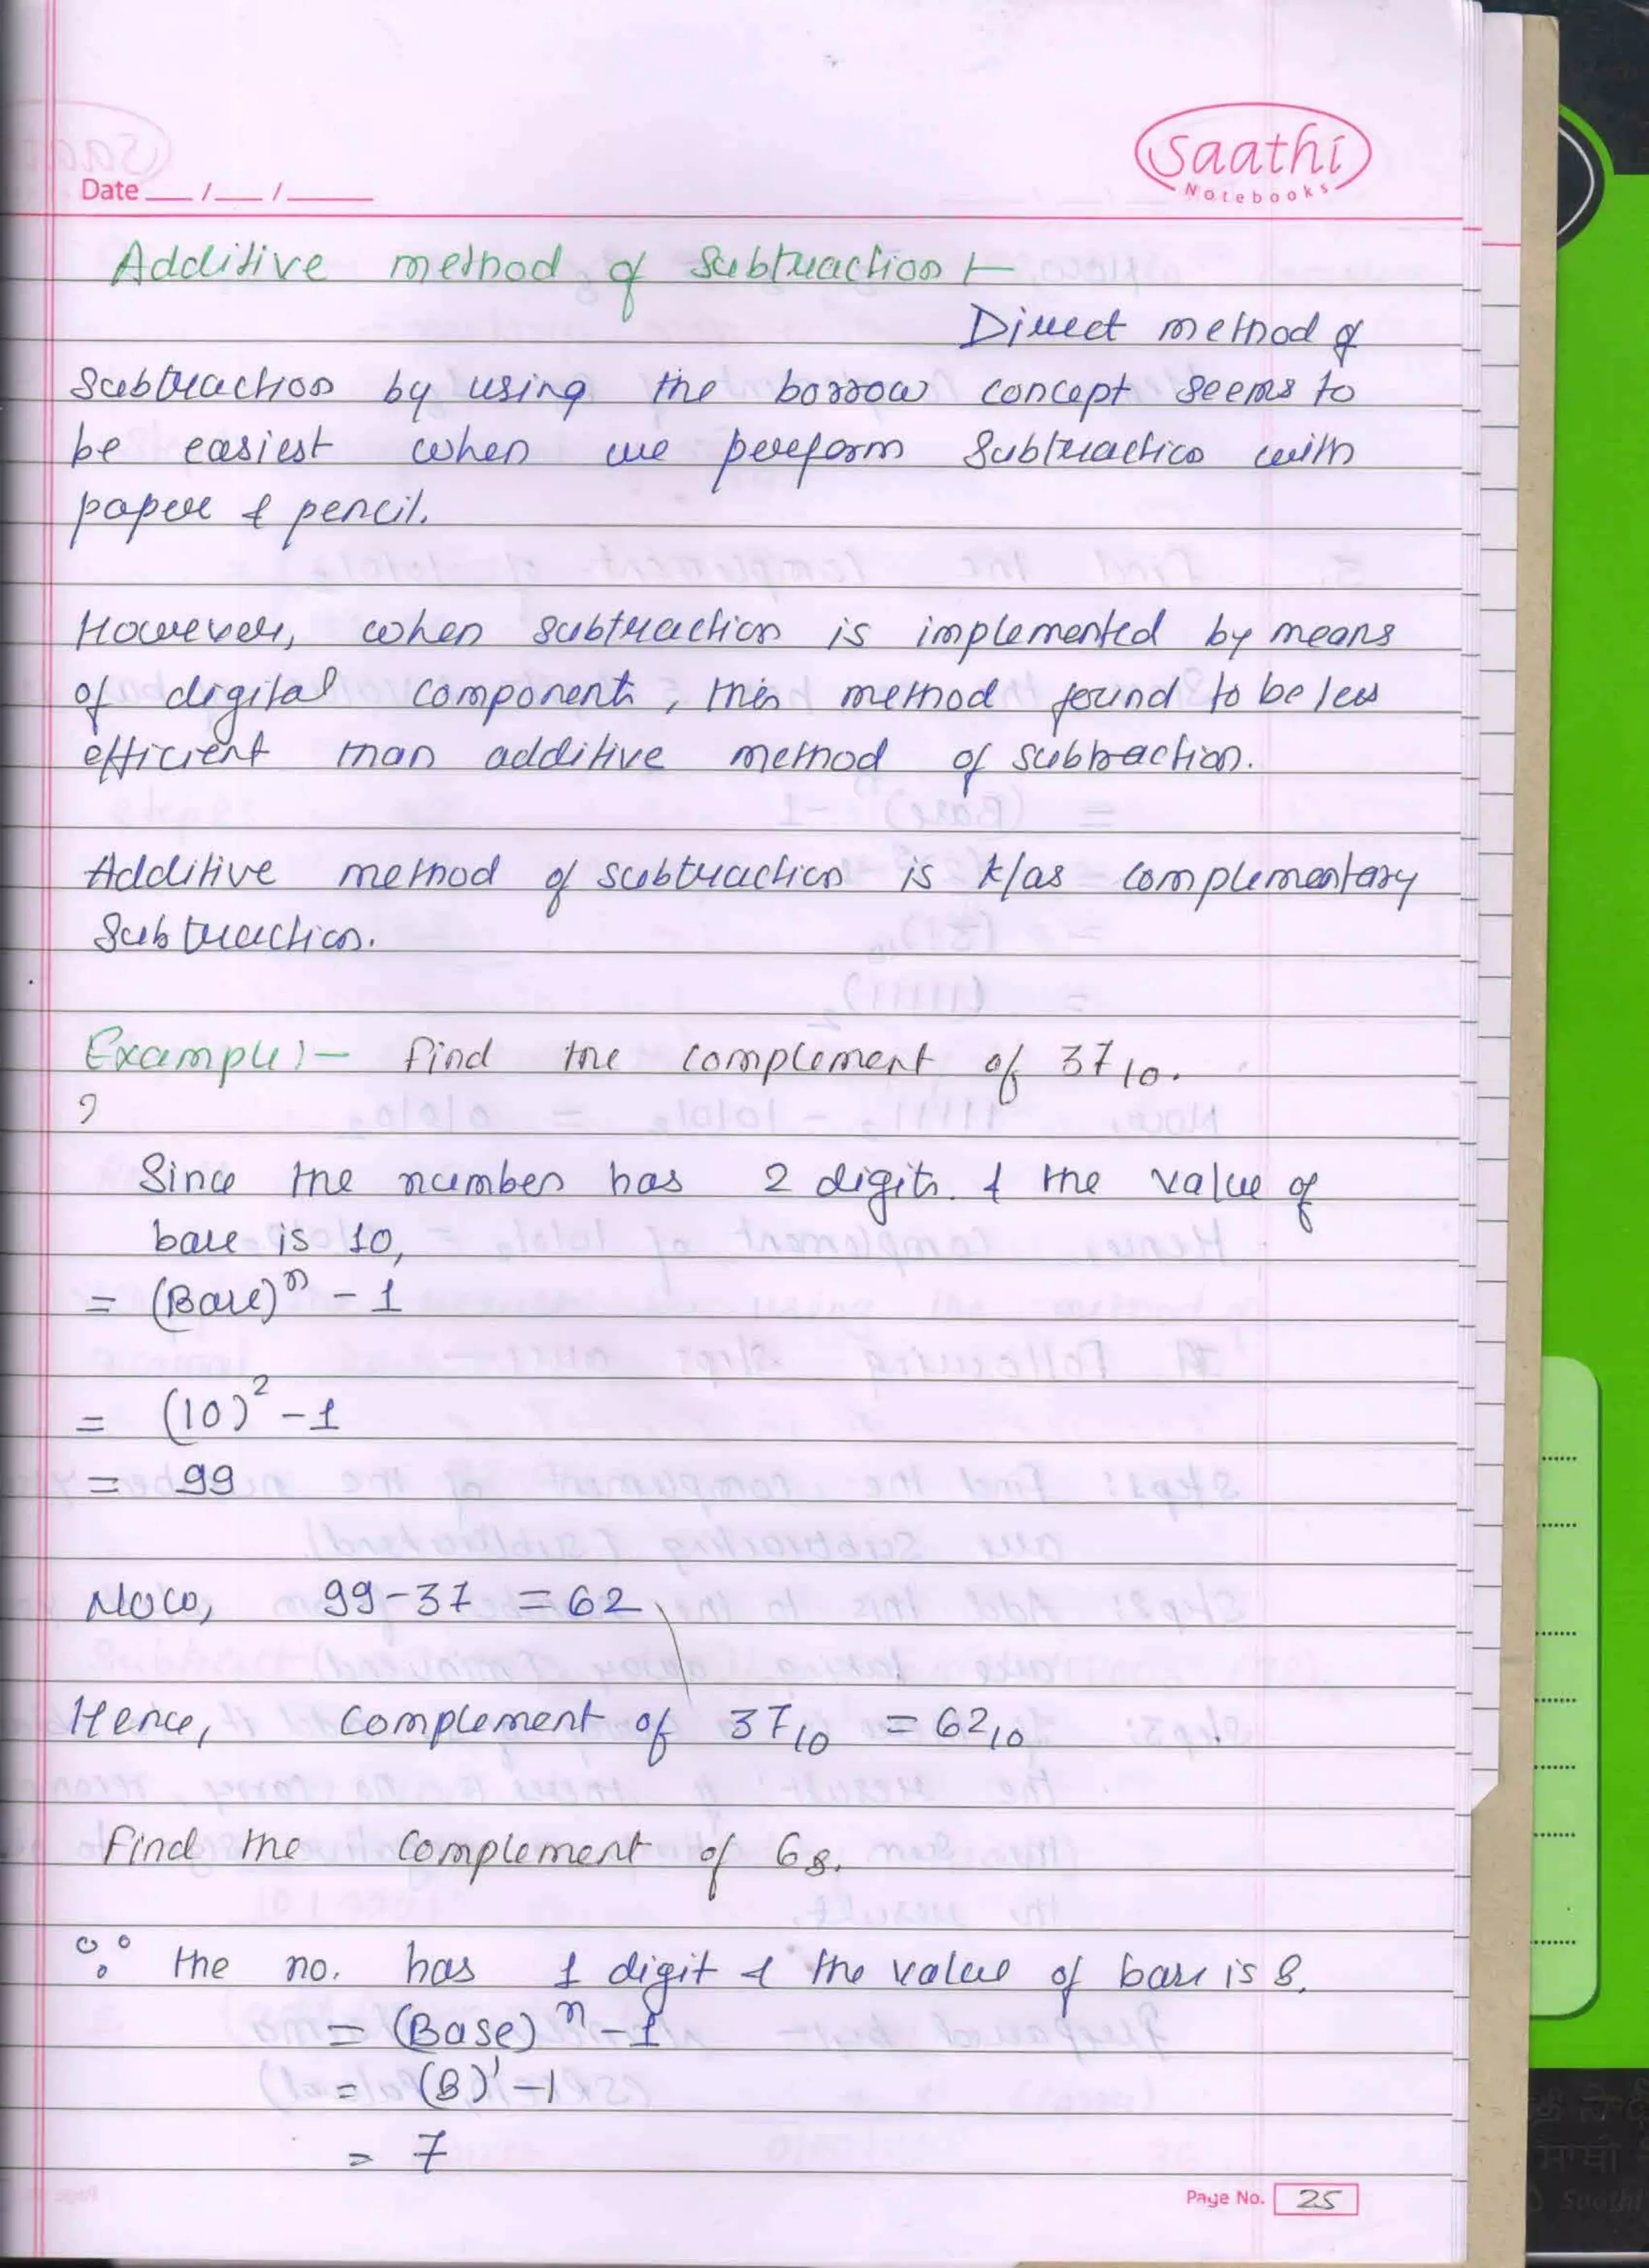 Saathi
Notebooks
Date ___ /___ /______
Additive method of Subtraction :-
Direct method of
Subtraction by using the borrow concept seems to
be easiest when we perform Subtraction with
paper & pencil.
However, when subtraction is implemented by means
of digital components, this method found to be less
efficient than additive method of subtraction.
Additive method of subtraction is k/as complementary
Subtraction.
Example :- Find the complement of 37₁₀.
Since the number has 2 digits. & the value of
base is 10,
= (Base)ⁿ - 1
= (10)² - 1
= 99
Now, 99-37 = 62
Hence, complement of 37₁₀ = 62₁₀
Find the complement of 6₈.
∵ the no. has 1 digit & the value of base is 8.
= (Base)ⁿ - 1
= (8)¹ - 1
= 7
Page No. 25